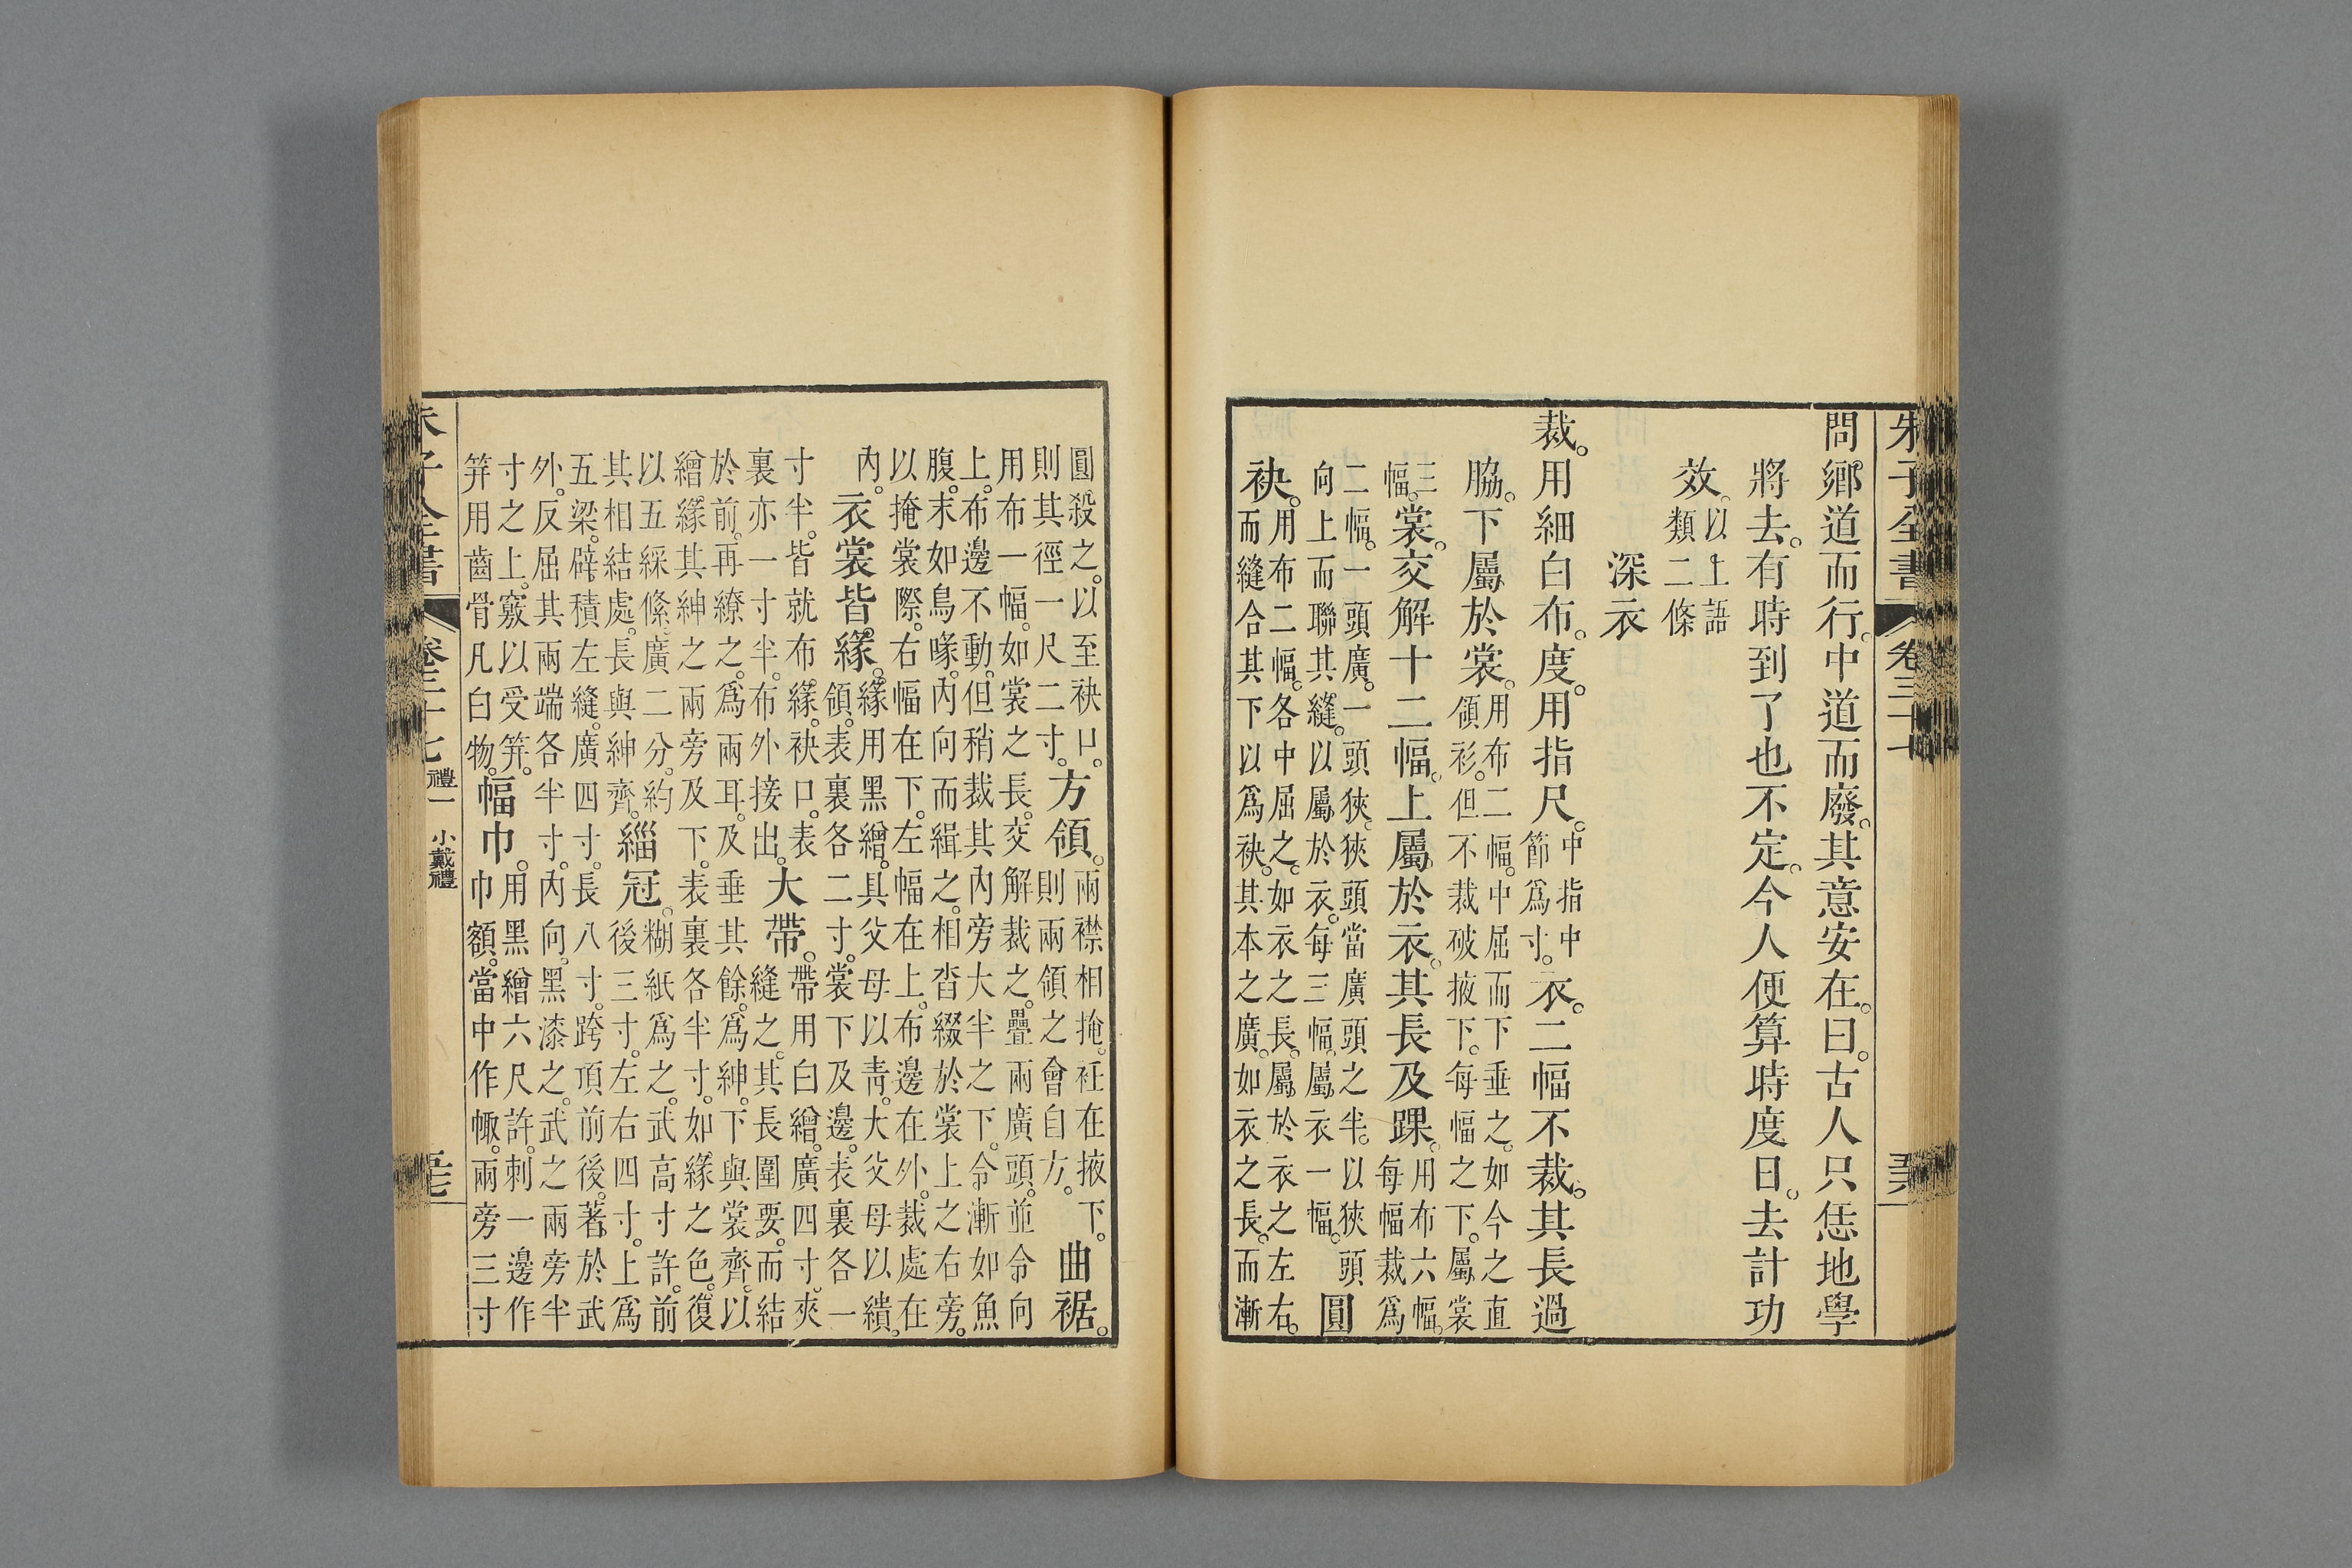 朱子全書 卷三十七
問。鄉道而行。中道而廢。其意安在。曰。古人只恁地學
將去。有時到了也不定。今人便算時度日。去計功
效。以上語
類二條
深衣
裁。用細白布。度。用指尺。中指中
節爲寸。衣。二幅不裁。其長過
脇。下屬於裳。用布二幅。中屈而下垂之。如今之直
領衫。但不裁破掖下。每幅之下。屬裳
三
幅。裳。交解十二幅。上屬於衣。其長及踝。用布六幅。
每幅裁爲
二幅。一頭廣。一頭狹。狹頭當廣頭之半。以狹頭
向上而聯其縫。以屬於衣。每三幅。屬衣一幅。圓
袂。用布二幅。各中屈之。如衣之長。屬於衣之左右。
而縫合其下以爲袂。其本之廣。如衣之長。而漸
圓殺之。以至袂口。
則其徑一尺二寸。方領。兩襟相掩。衽在掖下。
則兩領之會自方。曲裾。
用布一幅。如裳之長。交解裁之。疊兩廣頭。並令向
上。布邊不動。但稍裁其內旁大半之下。令漸如魚
腹。末如鳥喙。內向而緝之。相沓綴於裳上之右旁。
以掩裳際。右幅在下。左幅在上。布邊在外。裁處在
內。衣裳皆緣。緣用黑繒。具父母以青。大父母以繢。
領。表裏各二寸。裳下及邊。表裏各一
寸半。皆就布緣。袂口。表
裏亦一寸半。布外接出。大帶。帶用白繒。廣四寸。夾
縫之。其長圍要。而結
於前。再繚之。爲兩耳。及垂其餘。爲紳。下與裳齊。以
繒緣其紳之兩旁及下。表裏各半寸。如緣之色。復
以五綵絛。廣二分。約
其相結處。長與紳齊。緇冠。糊紙爲之。武高寸許。前
後三寸。左右四寸。上爲
五梁。辟積左縫。廣四寸。長八寸。跨頂前後。著於武
外。反屈其兩端各半寸。內向。黑漆之。武之兩旁半
寸之上。竅以受笄。
笄用齒骨凡白物。幅巾。用黑繒六尺許。刺一邊作
巾額。當中作㡇。兩旁三寸
朱子全書 卷三十七 禮一 小戴禮